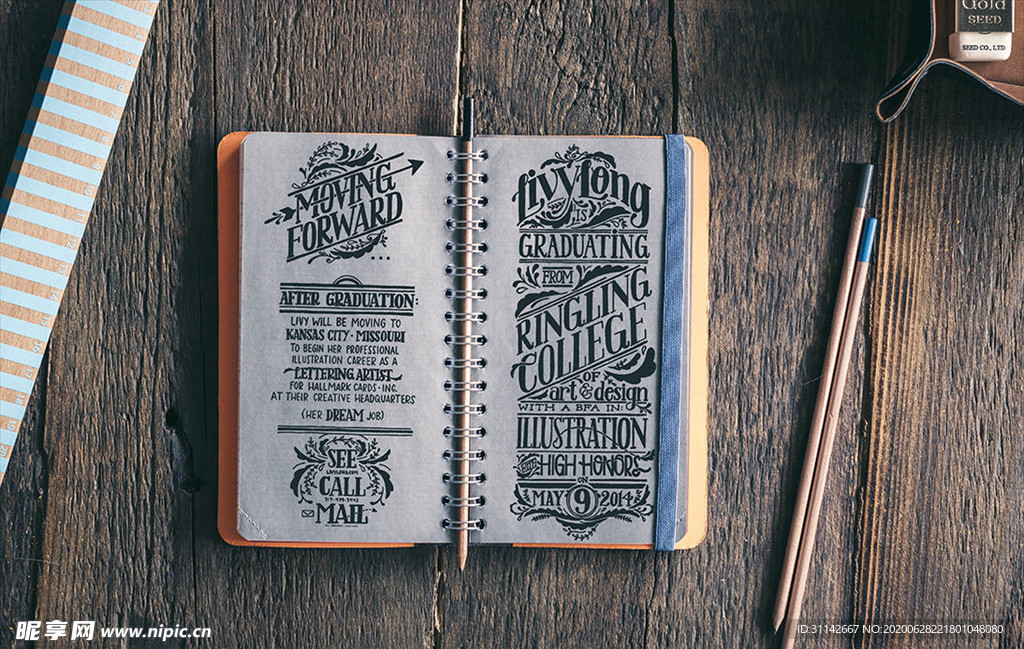 MOVING
FORWARD
...
AFTER GRADUATION:
LIVY WILL BE MOVING TO
KANSAS CITY · MISSOURI
TO BEGIN HER PROFESSIONAL
ILLUSTRATION CAREER AS A
LETTERING ARTIST
FOR HALLMARK CARDS · INC.
AT THEIR CREATIVE HEADQUARTERS
(HER DREAM JOB)
SEE
LIVYLONG.COM
CALL
MAIL
livy long
IS
GRADUATING
FROM
RINGLING
COLLEGE
OF
art & design
WITH A BFA IN:
ILLUSTRATION
AND HIGH HONORS
ON
MAY 9 2014
Gold
SEED
SEED CO., LTD.
昵享网 www.nipic.cn
ID:31142667 NO:20200628221801048080